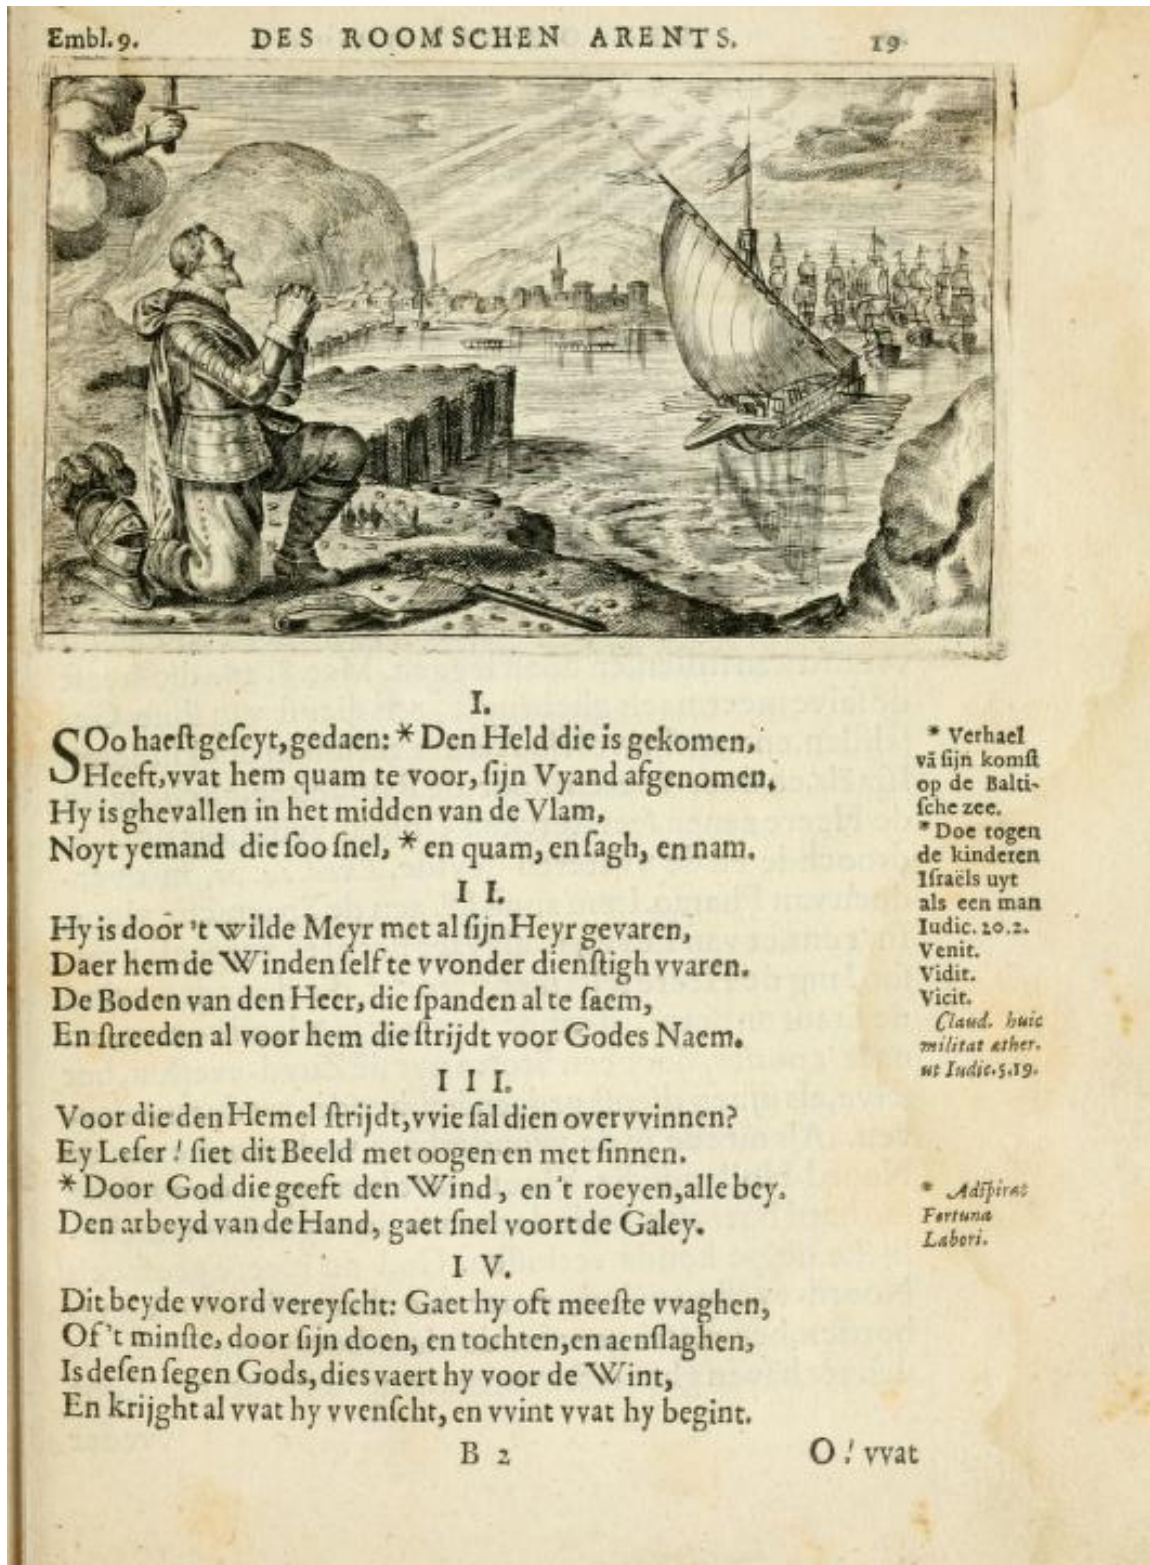 Embl. 9. DES ROOMSCHEN ARENTS. 19
I.
SOo haeſt geſeyt, gedaen: * Den Held die is gekomen,
Heeft, vvat hem quam te voor, ſijn Vyand afgenomen,
Hy is ghevallen in het midden van de Vlam,
Noyt yemand die ſoo ſnel, * en quam, en ſagh, en nam.
I I.
Hy is door 't wilde Meyr met al ſijn Heyr gevaren,
Daer hem de Winden ſelf te vvonder dienſtigh vvaren.
De Boden van den Heer, die ſpanden al te ſaem,
En ſtreeden al voor hem die ſtrijdt voor Godes Naem.
I I I.
Voor die den Hemel ſtrijdt, vvie ſal dien overvvinnen?
Ey Leſer! ſiet dit Beeld met oogen en met ſinnen.
* Door God die geeft den Wind, en 't roeyen, alle bey.
Den arbeyd van de Hand, gaet ſnel voort de Galey.
I V.
Dit beyde vvord vereyſcht: Gaet hy oft meeſte vvaghen,
Of 't minſte, door ſijn doen, en tochten, en aenſlaghen,
Is deſen ſegen Gods, dies vaert hy voor de Wint,
En krijght al vvat hy vvenſcht, en vvint vvat hy begint.
B 2 O! vvat
* Verhael
vā ſijn komſt
op de Balti-
ſche zee.
* Doe togen
de kinderen
Iſraëls uyt
als een man
Iudic. 20.2.
Venit.
Vidit.
Vicit.
Claud. huic
militat æther.
ut Iudic. 5.19.
* Adſpirat
Fortuna
Labori.